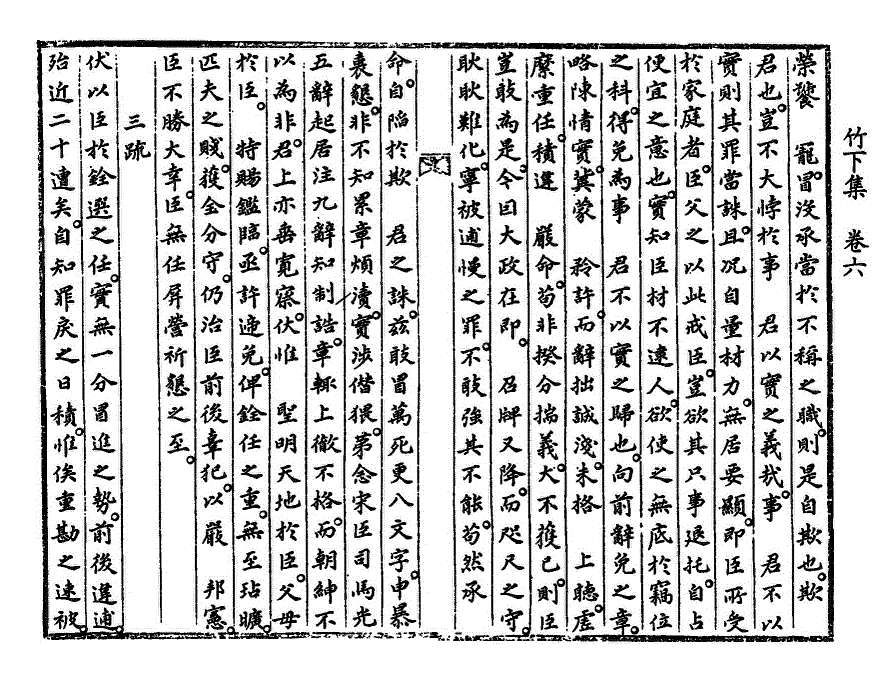 竹下集 卷六
榮饕 寵冒沒承當於不稱之職則是自欺也欺
君也豈不大悖於事 君以實之義哉事 君不以
實則其罪當誅且况自量材力無居要顯即臣所受
於家庭者臣父之以此戒臣豈欲其只事退托自占
便宜之意也實知臣材不逮人欲使之無底於竊位
之科得免為事 君不以實之歸也向前辭免之章
略陳情實冀蒙 矜許而辭拙誠淺未格 上聽虛
縻重任積違 嚴命苟非揆分揣義大不獲已則臣
豈敢為是今日大政在即 召牌又降而咫尺之守
耿耿難化寧被逋慢之罪不敢強其不能苟然承
命自陷於欺 君之誅玆敢冒萬死更入文字申暴
衷懇非不知累章煩瀆實涉僭猥第念宋臣司馬光
五辭起居注九辭知制誥章輒上徹不格而朝紳不
以為非君上亦垂寬察伏惟 聖明天地於臣父母
於臣 特賜鑑臨亟許遞免俾銓任之重無至玷曠
匹夫之賤獲全分守仍治臣前後辜犯以嚴 邦憲
臣不勝大幸臣無任屏營祈懇之至
三疏
伏以臣於銓選之任實無一分冒進之勢前後違逋
殆近二十遭矣自知罪戾之日積惟俟重勘之速被